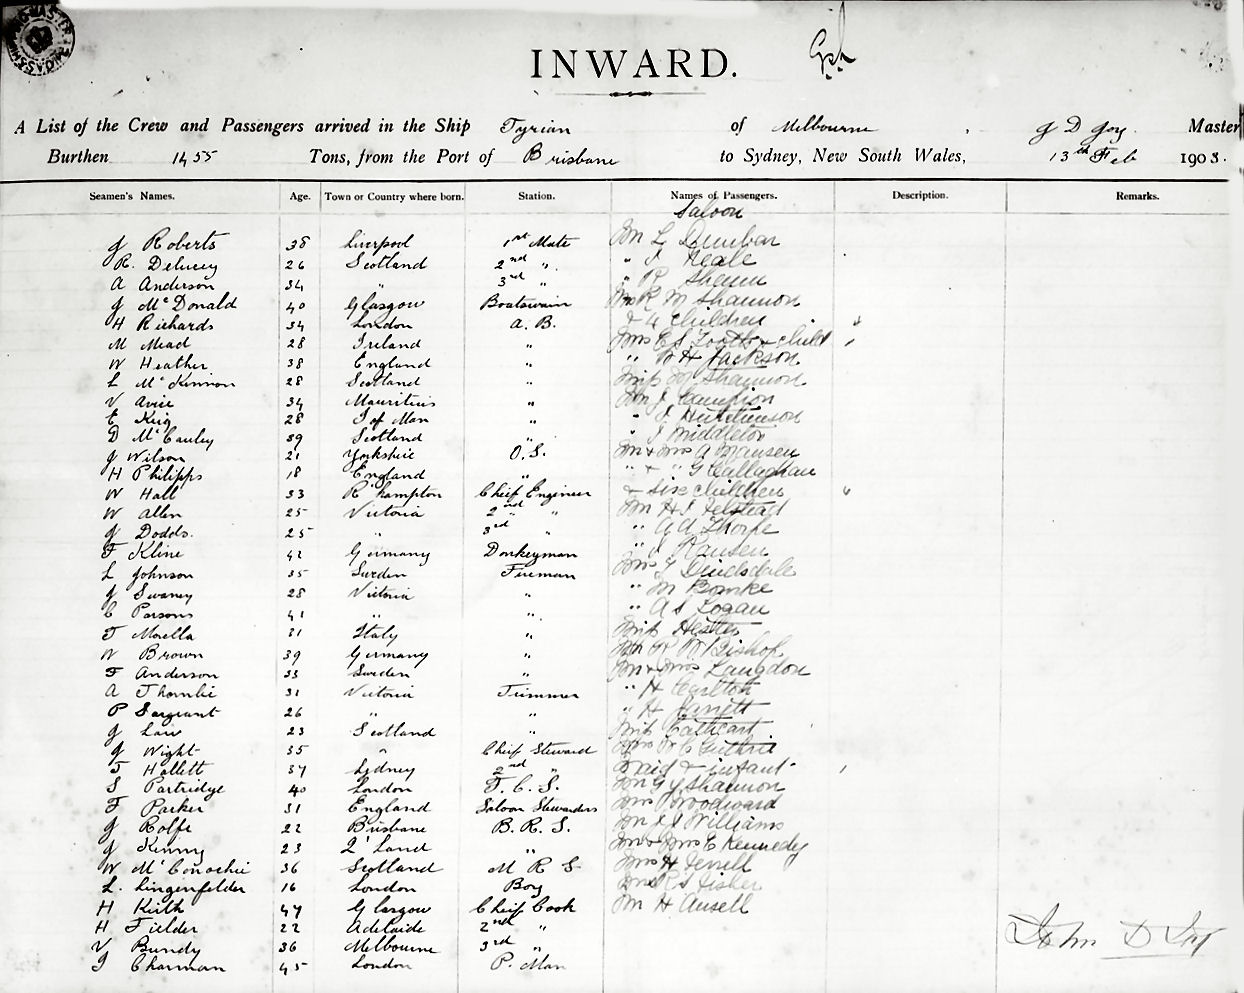 INWARD.
A List of the Crew and Passengers arrived in the Ship Tyrian of Melbourne, J D Joy Master
Burthen 1455 Tons, from the Port of Brisbane to Sydney, New South Wales, 13th Feb 1903.
Seamen's Names. Age. Town or Country where born. Station. Names of Passengers. Description. Remarks.
Saloon
J Roberts 38 Liverpool 1st Mate Mr L Dunbar
R. Delucey 26 Scotland 2nd " " J Neale
A Anderson 34 " 3rd " " R Shann
J McDonald 40 Glasgow Boatswain Mrs R M Shannon
H Richards 34 London A. B. & 4 Children
M Mead 28 Ireland " Mrs E S Tooth & child
W Heather 38 England " " W H Jackson
L McKinnon 28 Scotland " Miss M Shannon
V Avice 34 Mauritius " Mr J Campion
E Keig 28 I of Man " " J Hutchinson
D McCauley 39 Scotland " " J Middleton
J Wilson 21 Yorkshire O.S. Mr & Mrs A Mansen
H Philipps 18 England " " & " G Callaghan
W Hall 33 R'hampton Chief Engineer & six children
W Allen 25 Victoria 2nd " Mr H J Felstead
J Dodds. 25 " 3rd " " A A Thorpe
F Kline 42 Germany Donkeyman " J Ransen
L Johnson 35 Sweden Fireman Mrs T Dindsdale
J Swaney 28 Victoria " " M Bourke
C Parsons 41 " " " A S Logan
T Morella 31 Italy " Miss Hester
W Brown 39 Germany " R W Bishop
F Anderson 33 Sweden " Mr & Mrs Langdon
A Thornlie 31 Victoria Trimmer " H Carlton
P Sargeant 26 " " " H Jarrett
J Law 23 Scotland " Miss Cathcart
J Wight 35 " Chief Steward Mrs W C Guthrie
T Hallett 37 Sydney 2nd " Maid & infant
S Partridge 40 London F. C. S. Mr G Y Shannon
F Parker 31 England Saloon Stewardess Mrs Woodward
J Rolfe 22 Brisbane B. R. S. Mr J J Williams
J Kenny 23 Q'Land " Mr & Mrs C Kennedy
W McConochie 36 Scotland M R S Mrs H Jewell
L. Lingenfelder 16 London Boy R S Fisher
H Keith 47 Glasgow Chief Cook Mr H Ansell
H Fielder 22 Adelaide 2nd "
V Bundy 36 Melbourne 3rd "
J Charman 45 London P. Man
John D Joy